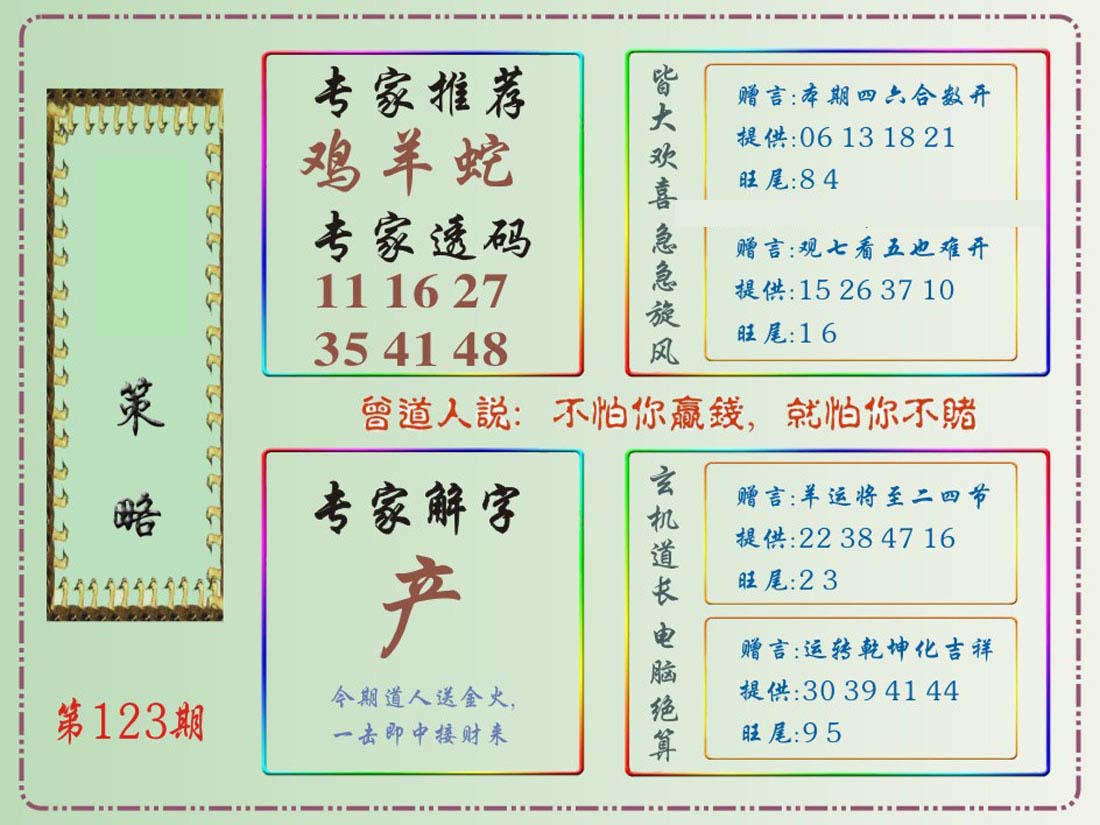 策略
第123期
专家推荐
鸡羊蛇
专家透码
11 16 27
35 41 48
皆大欢喜
赠言:本期四六合数开
提供:06 13 18 21
旺尾:8 4
急急旋风
赠言:观七看五也难开
提供:15 26 37 10
旺尾:1 6
曾道人説: 不怕你贏錢, 就怕你不賭
专家解字
产
今期道人送金火,
一击即中接财来
玄机道长
赠言:羊运将至二四节
提供:22 38 47 16
旺尾:2 3
电脑绝算
赠言:运转乾坤化吉祥
提供:30 39 41 44
旺尾:9 5